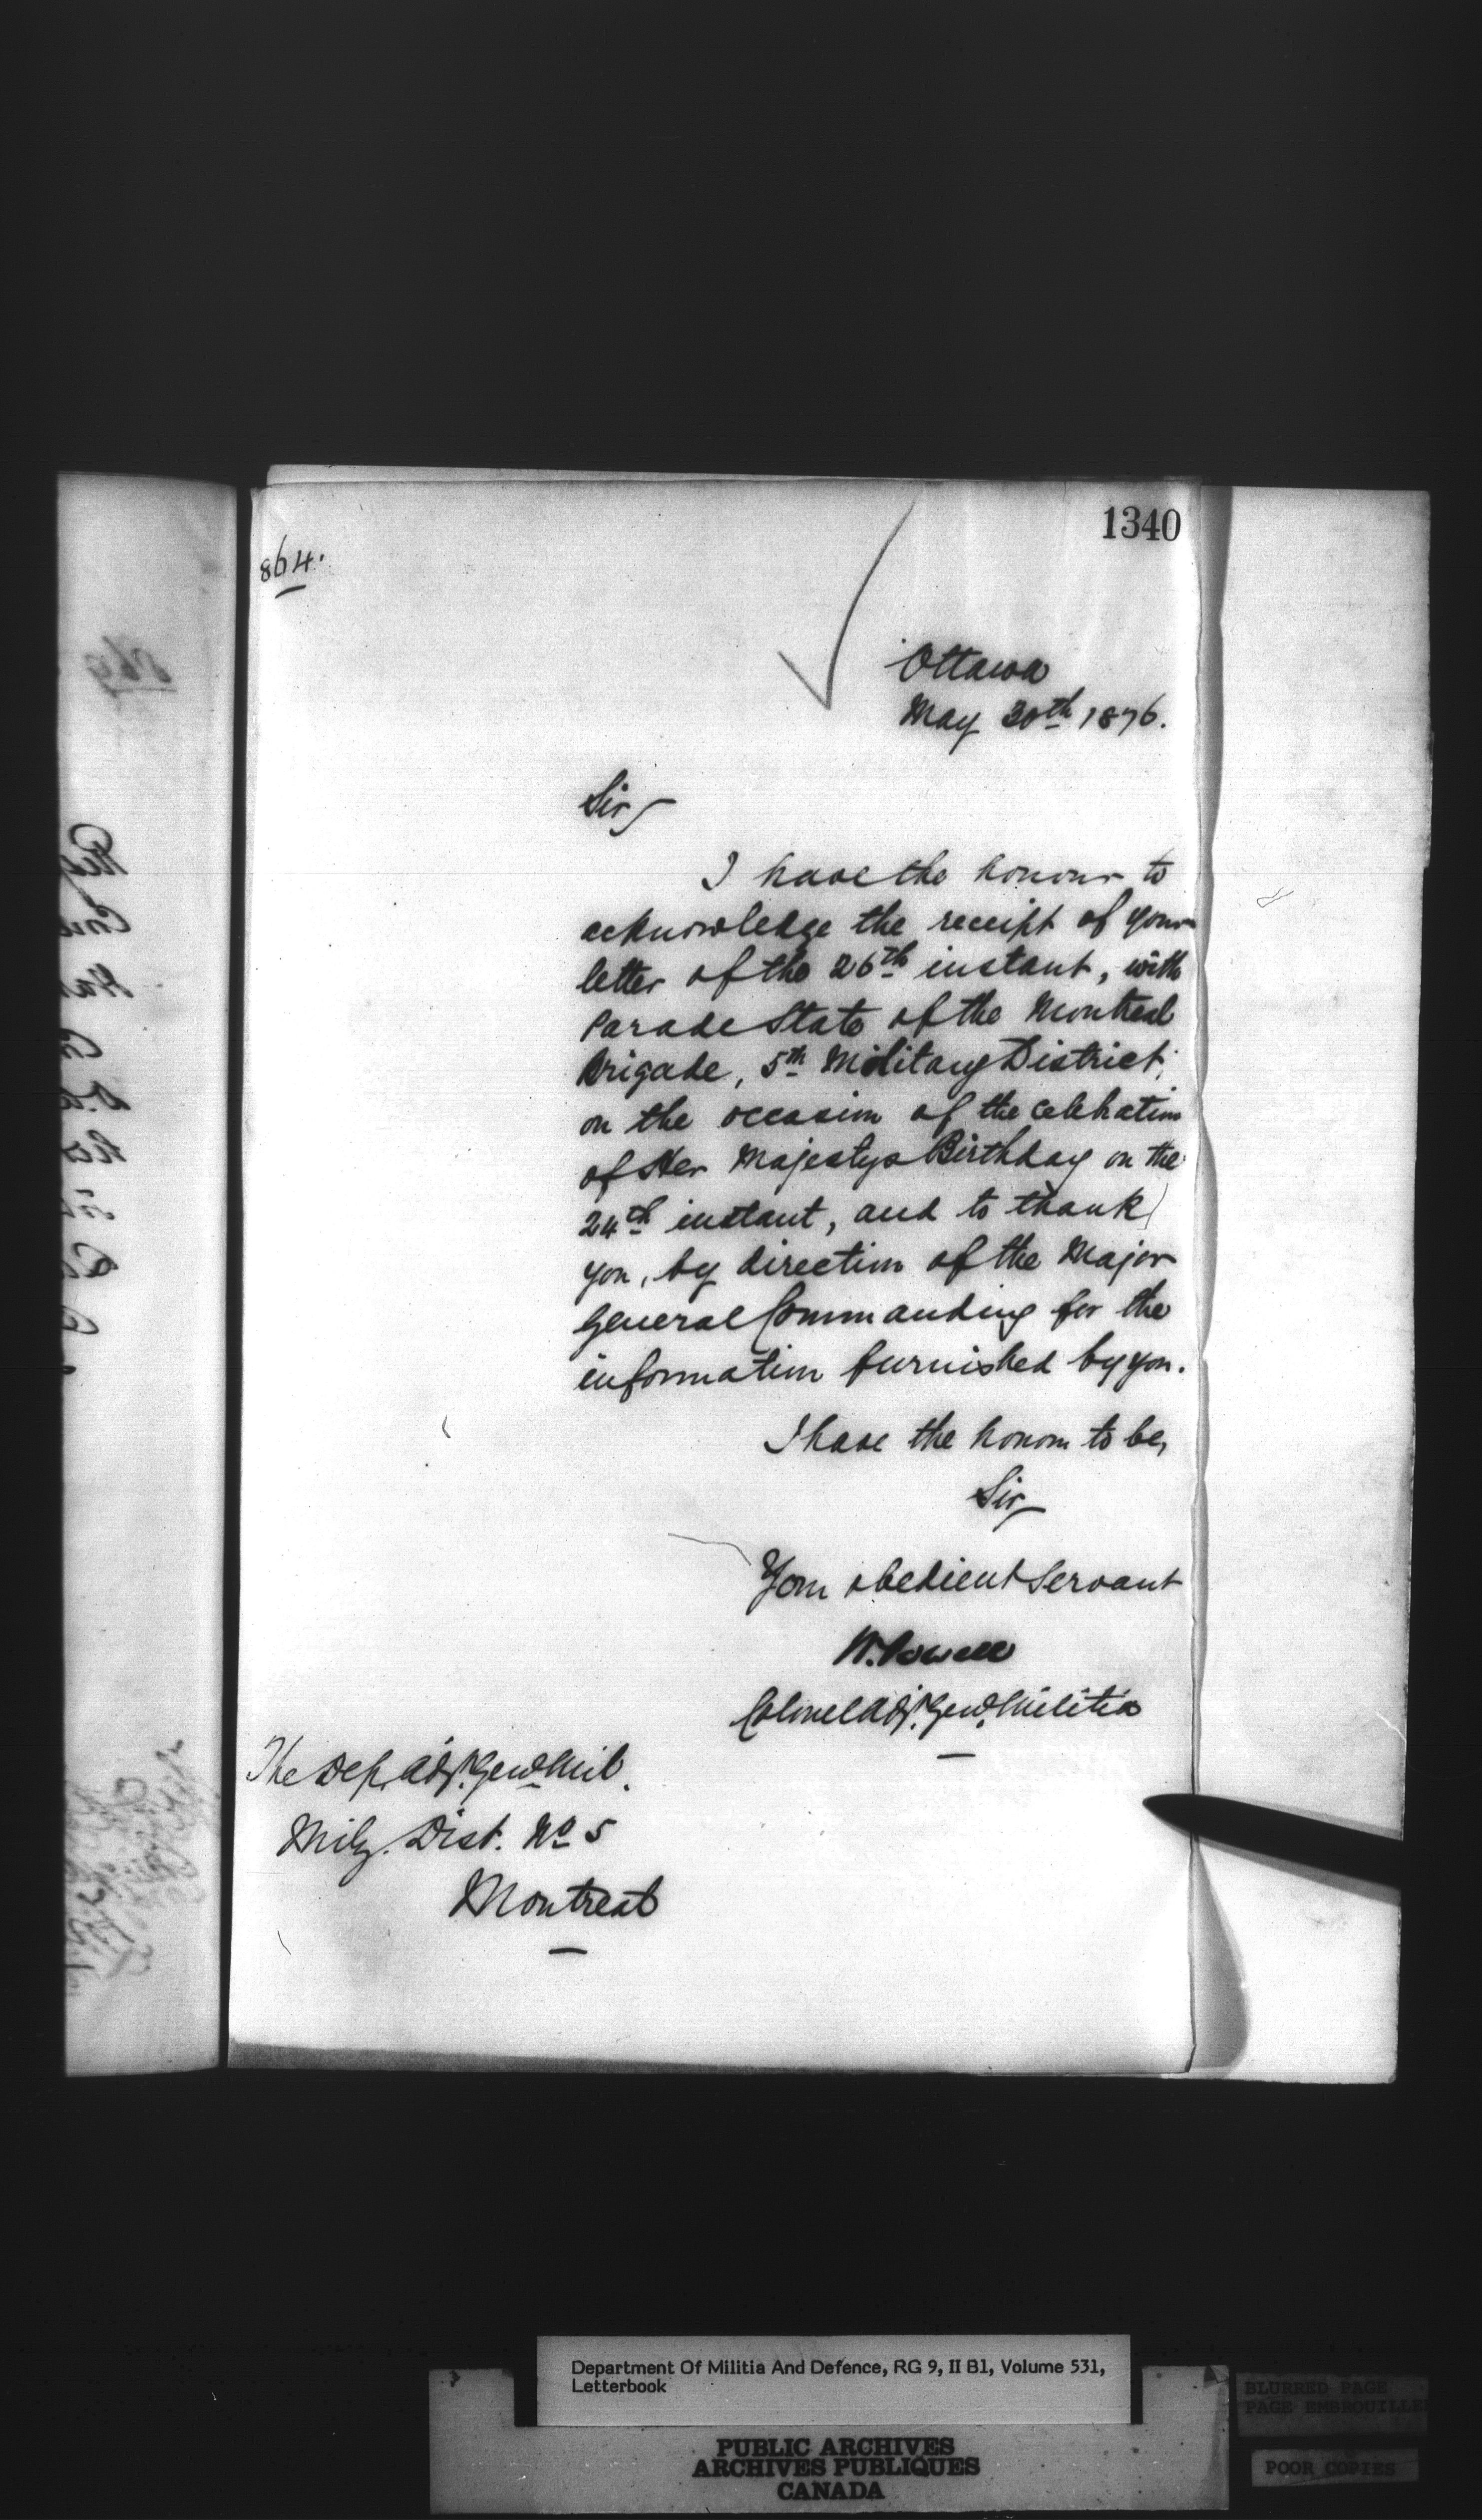 1340
864.
Ottawa
May 30th 1876.
Sir,
I have the honour to
acknowledge the receipt of your
letter of the 26th instant, with
Parade State of the Montreal
Brigade, 5th Military District,
on the occasion of the celebration
of Her Majestys Birthday on the
24th instant, and to thank
you, by direction of the Major
General Commanding for the
information furnished by you.
I have the honour to be,
Sir,
Your obedient Servant
W. Powell
Colonel Adjt. Genl. Militia
The Dep. Adjt. Genl. Mil.
Mily. Dist. No 5
Montreal
Department Of Militia And Defence, RG 9, II B1, Volume 531,
Letterbook
PUBLIC ARCHIVES
ARCHIVES PUBLIQUES
CANADA
BLURRED PAGE
PAGE EMBROUILLEE
POOR COPIES